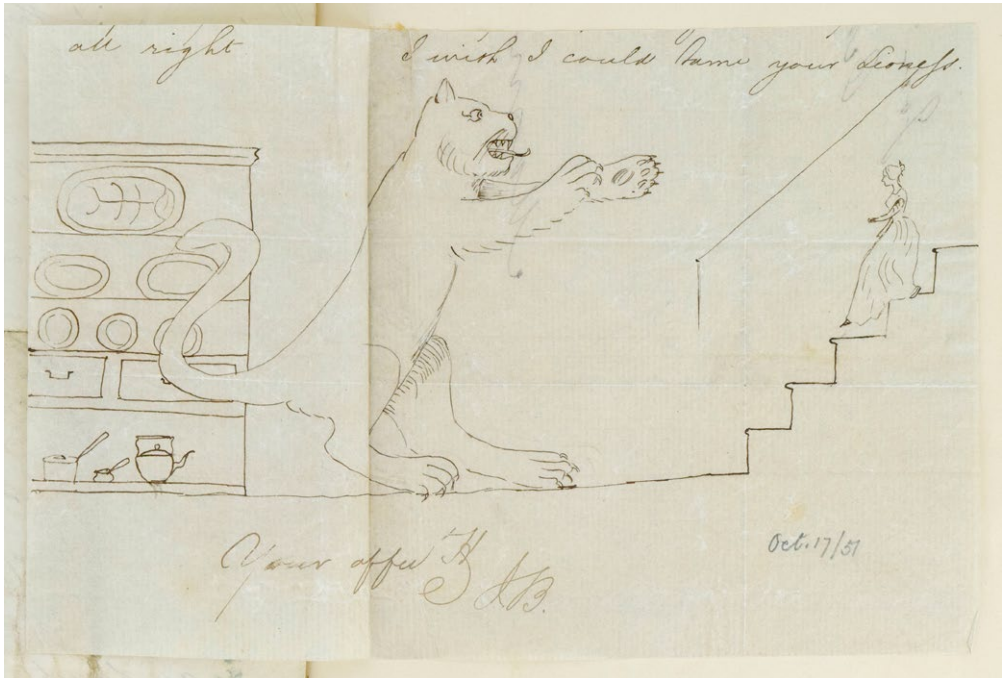 all right I wish I could tame your Lioness.
Your affec
JB.
Oct. 17/51